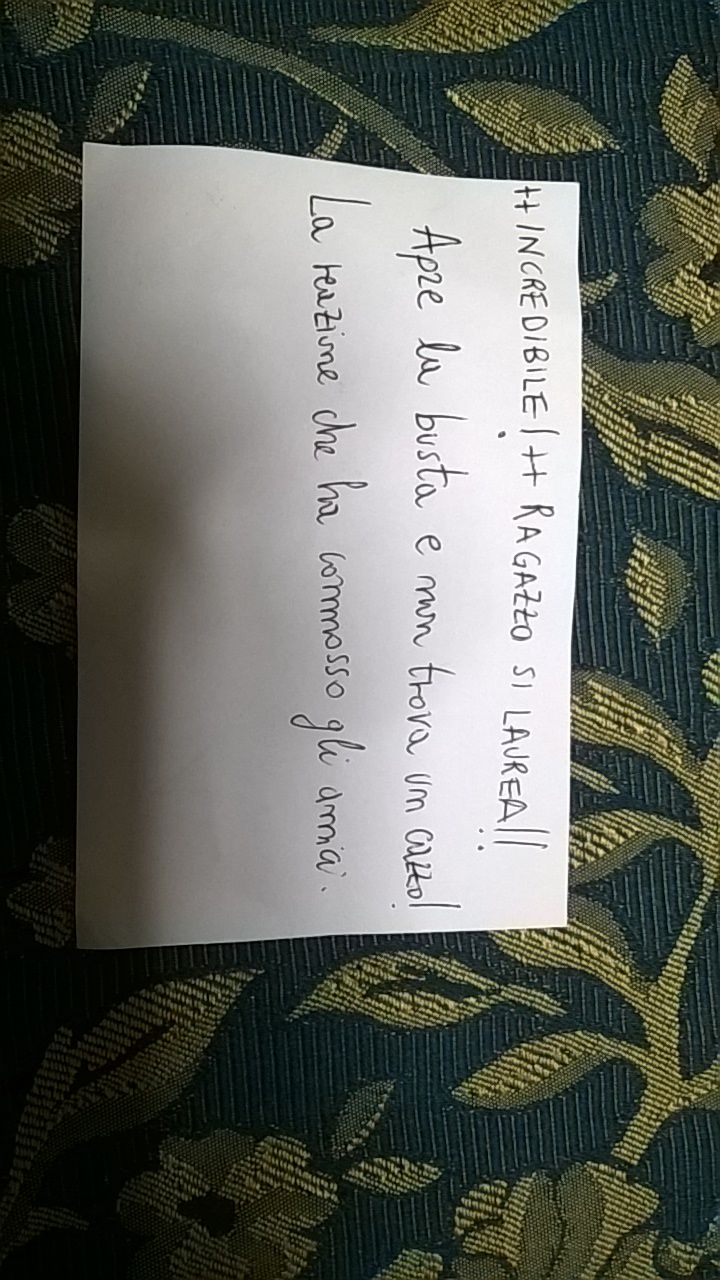 ++ INCREDIBILE! ++ RAGAZZO SI LAUREA!!
Apre la busta e non trova un cazzo!
La reazione che ha commosso gli amici.